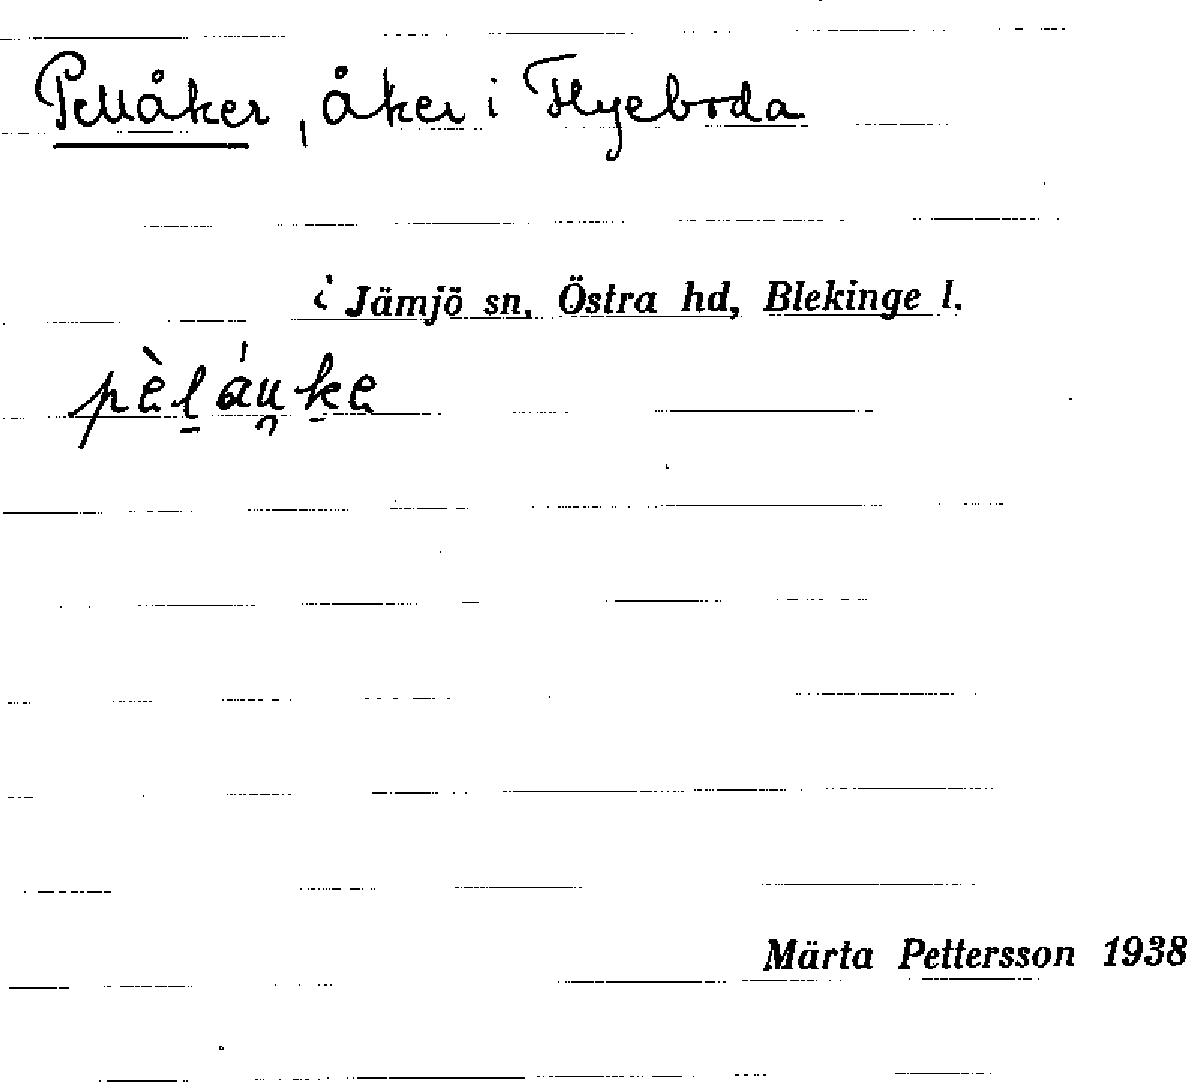 Pellåker, åker i Flyeboda
i Jämjö sn, Östra hd, Blekinge l.
pὲlá́u̯ke
Märta Pettersson 1938